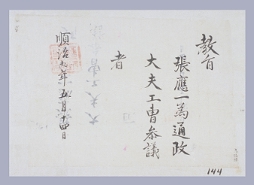 敎旨
張應一爲通政
大夫工曹參議
者
順治年五月十四日
144